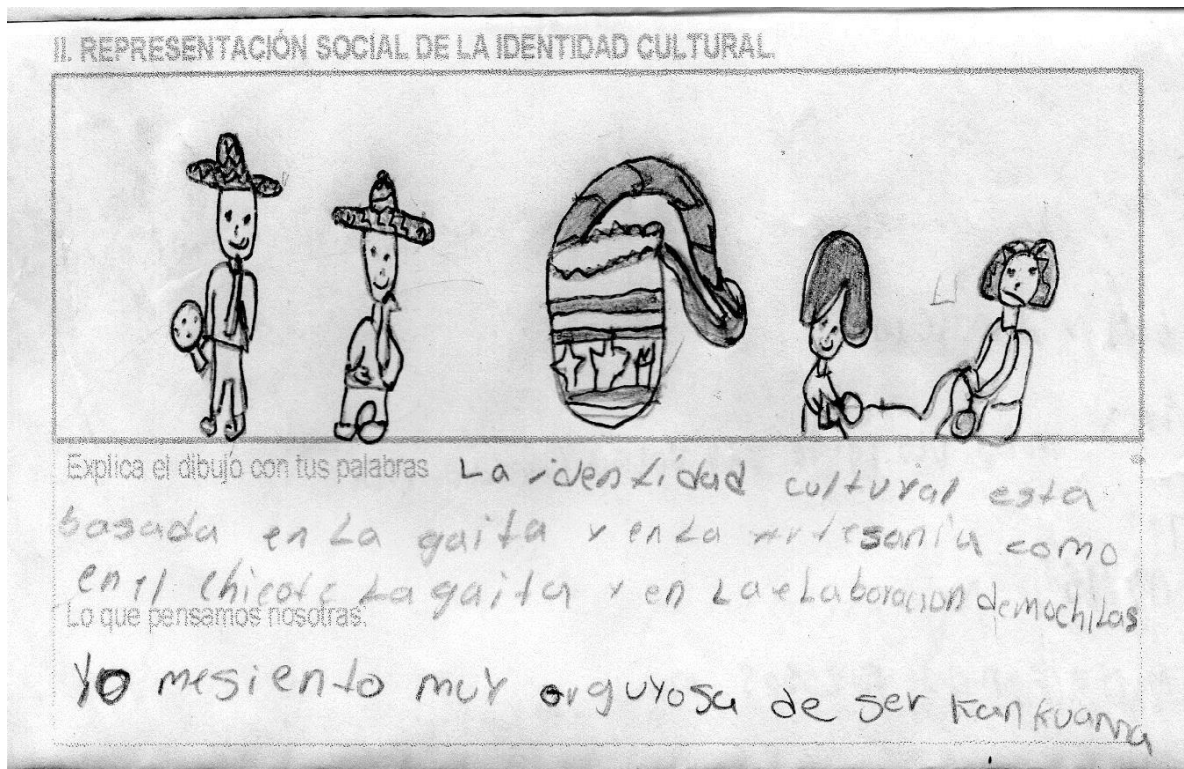 II. REPRESENTACIÓN SOCIAL DE LA IDENTIDAD CULTURAL.
Explica el dibujo con tus palabras La identidad cultural esta
basada en La gaita y en La artesania como
en el chicote La gaita y en La eLaboracion de mochiLas
Lo que pensamos nosotras:
Yo mesiento muy orguyosa de ser kankuama